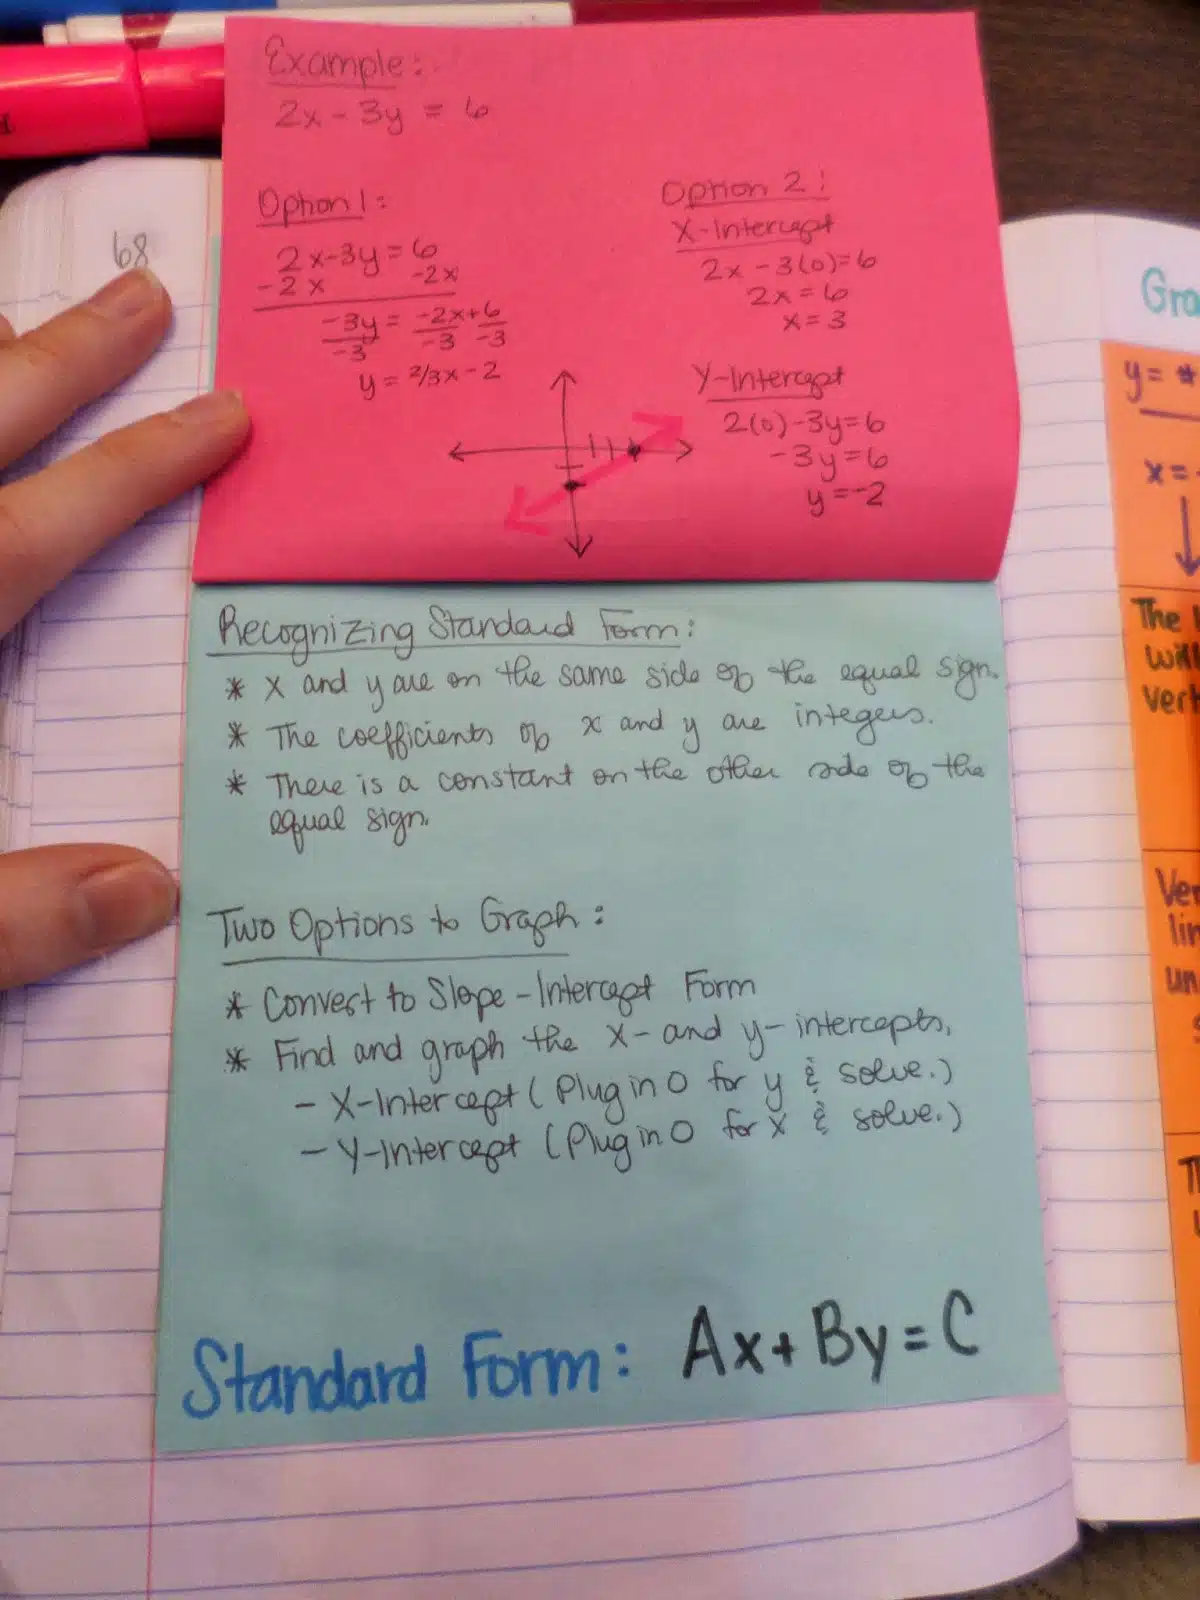 Example:
2x - 3y = 6
Option 1:
2x-3y=6
-2x -2x
-3y = -2x+6
-3 -3 -3
y = 2/3x - 2
Option 2:
X-Intercept
2x - 3(0)=6
2x = 6
x = 3
Y-Intercept
2(0)-3y=6
-3y=6
y=-2
68
Recognizing Standard Form:
* X and y are on the same side of the equal sign.
* The coefficients of x and y are integers.
* There is a constant on the other side of the
equal sign.
Two Options to Graph:
* Convert to Slope-Intercept Form
* Find and graph the X- and y-intercepts.
- X-Intercept (Plug in 0 for y & solve.)
- Y-Intercept (Plug in 0 for X & solve.)
Standard Form: Ax + By = C
Gra
y = *
x = -
The
will
vert
Ver
lin
un